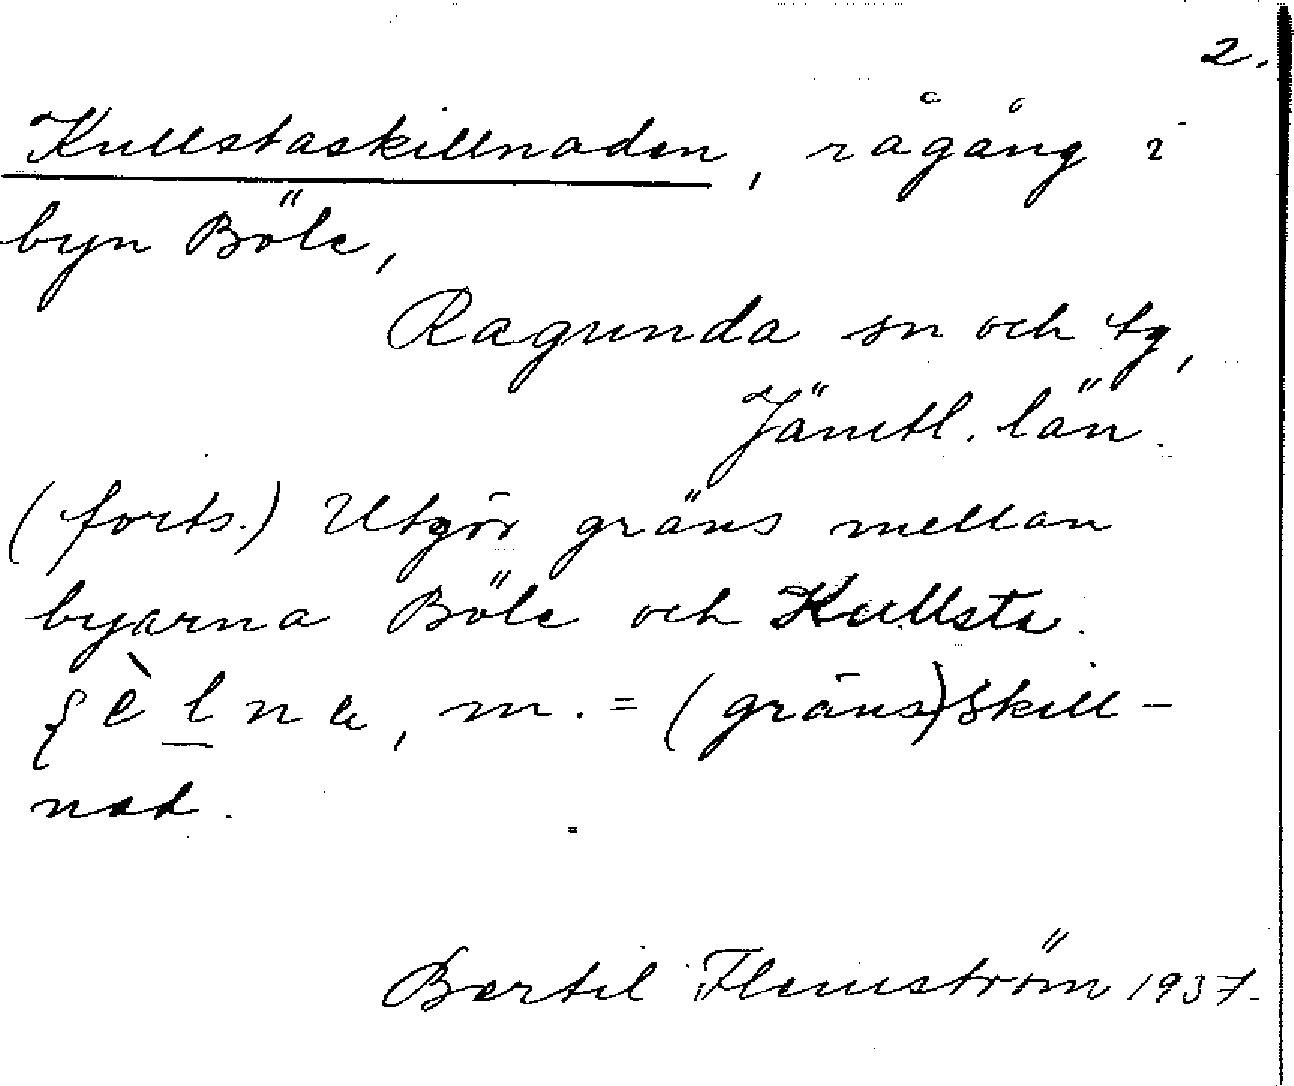 2.
Kullstaskillnaden, rågång i
byn Böle,
Ragunda sn och tg,
Jämtl. län.
(forts.) Utgör gräns mellan
byarna Böle och Kullsta.
m. = (gräns)skill-
nad.
Bertil Flemström 1937.